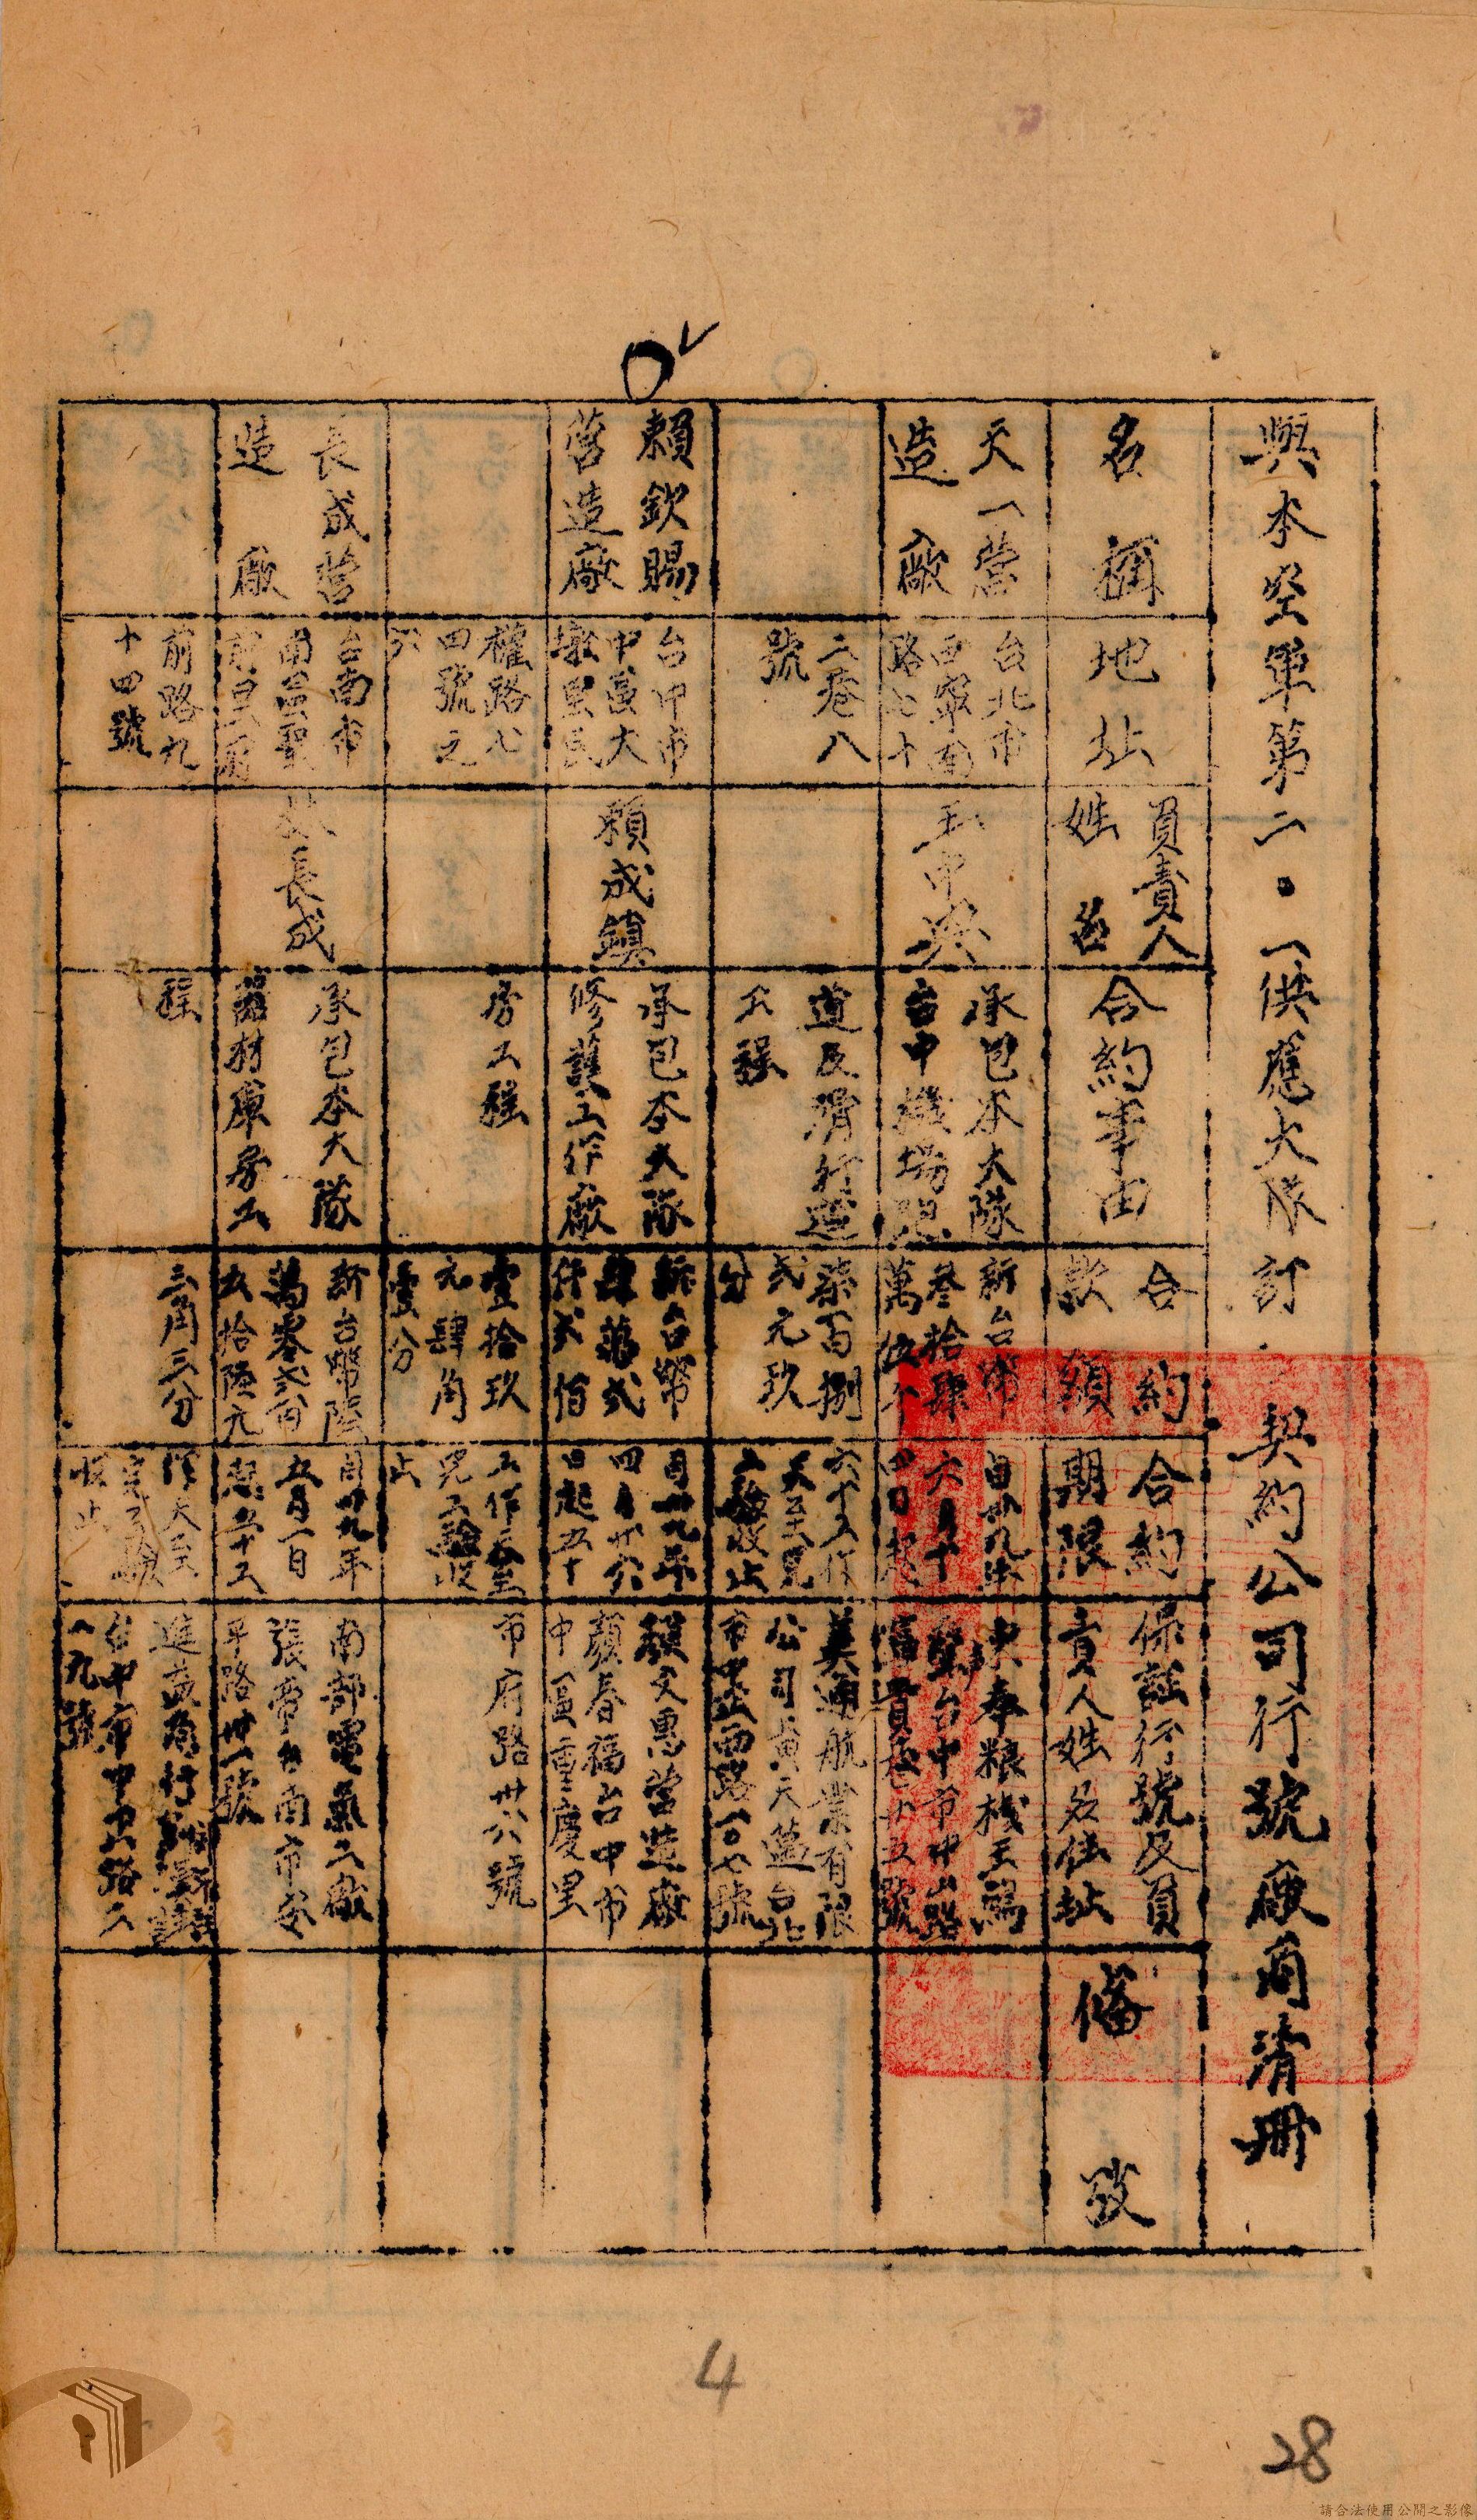 與本空軍第二〇一供應大隊訂契約公司行號廠商清冊
名稱
地址
負責人
姓名
合約事由
合約
款額
合約
期限
保証行號及負
責人姓名住址
備攷
天一營
造廠
台北市
西寧南
路七十
二巷八
號
王中興
承包本大隊
台中機場跑
道及滑行道
工程
新台幣
叁拾肆
萬伍仟
柒百捌
弍元玖
分
自卅九年
六月十
四日起
六十工作
天至完
工驗收止
央奉粮棧王鴻
台中市中山路
五號
美通航業有限
公司黃天造台北
市中正西路一〇七號
賴欽賜
營造廠
台中市
中區大
墩里民
權路八
四號之
六
賴成鎮
承包本大隊
修護工作廠
房工程
新台幣
肆萬弍
仟弍佰
壹拾玖
元肆角
壹分
自卅九年
四月廿六
日起五十
工作天至
完工驗收
止
顏文惠營造廠
顏春福台中市
中區重慶里
市府路卅六號
長成營
造廠
台南市
南區
前路九
十四號
長成
承包本大隊
器材庫房工
程
新台幣陸
萬零弍佰
五拾陸元
三角三分
自卅九年
五月一日
起六十工
作天至
完工驗
收止
南部電氣工廠
張帝台南市安
平路卅一號
進益商行
台中市中山路二
八九號
4
28
請合法使用公開之影像